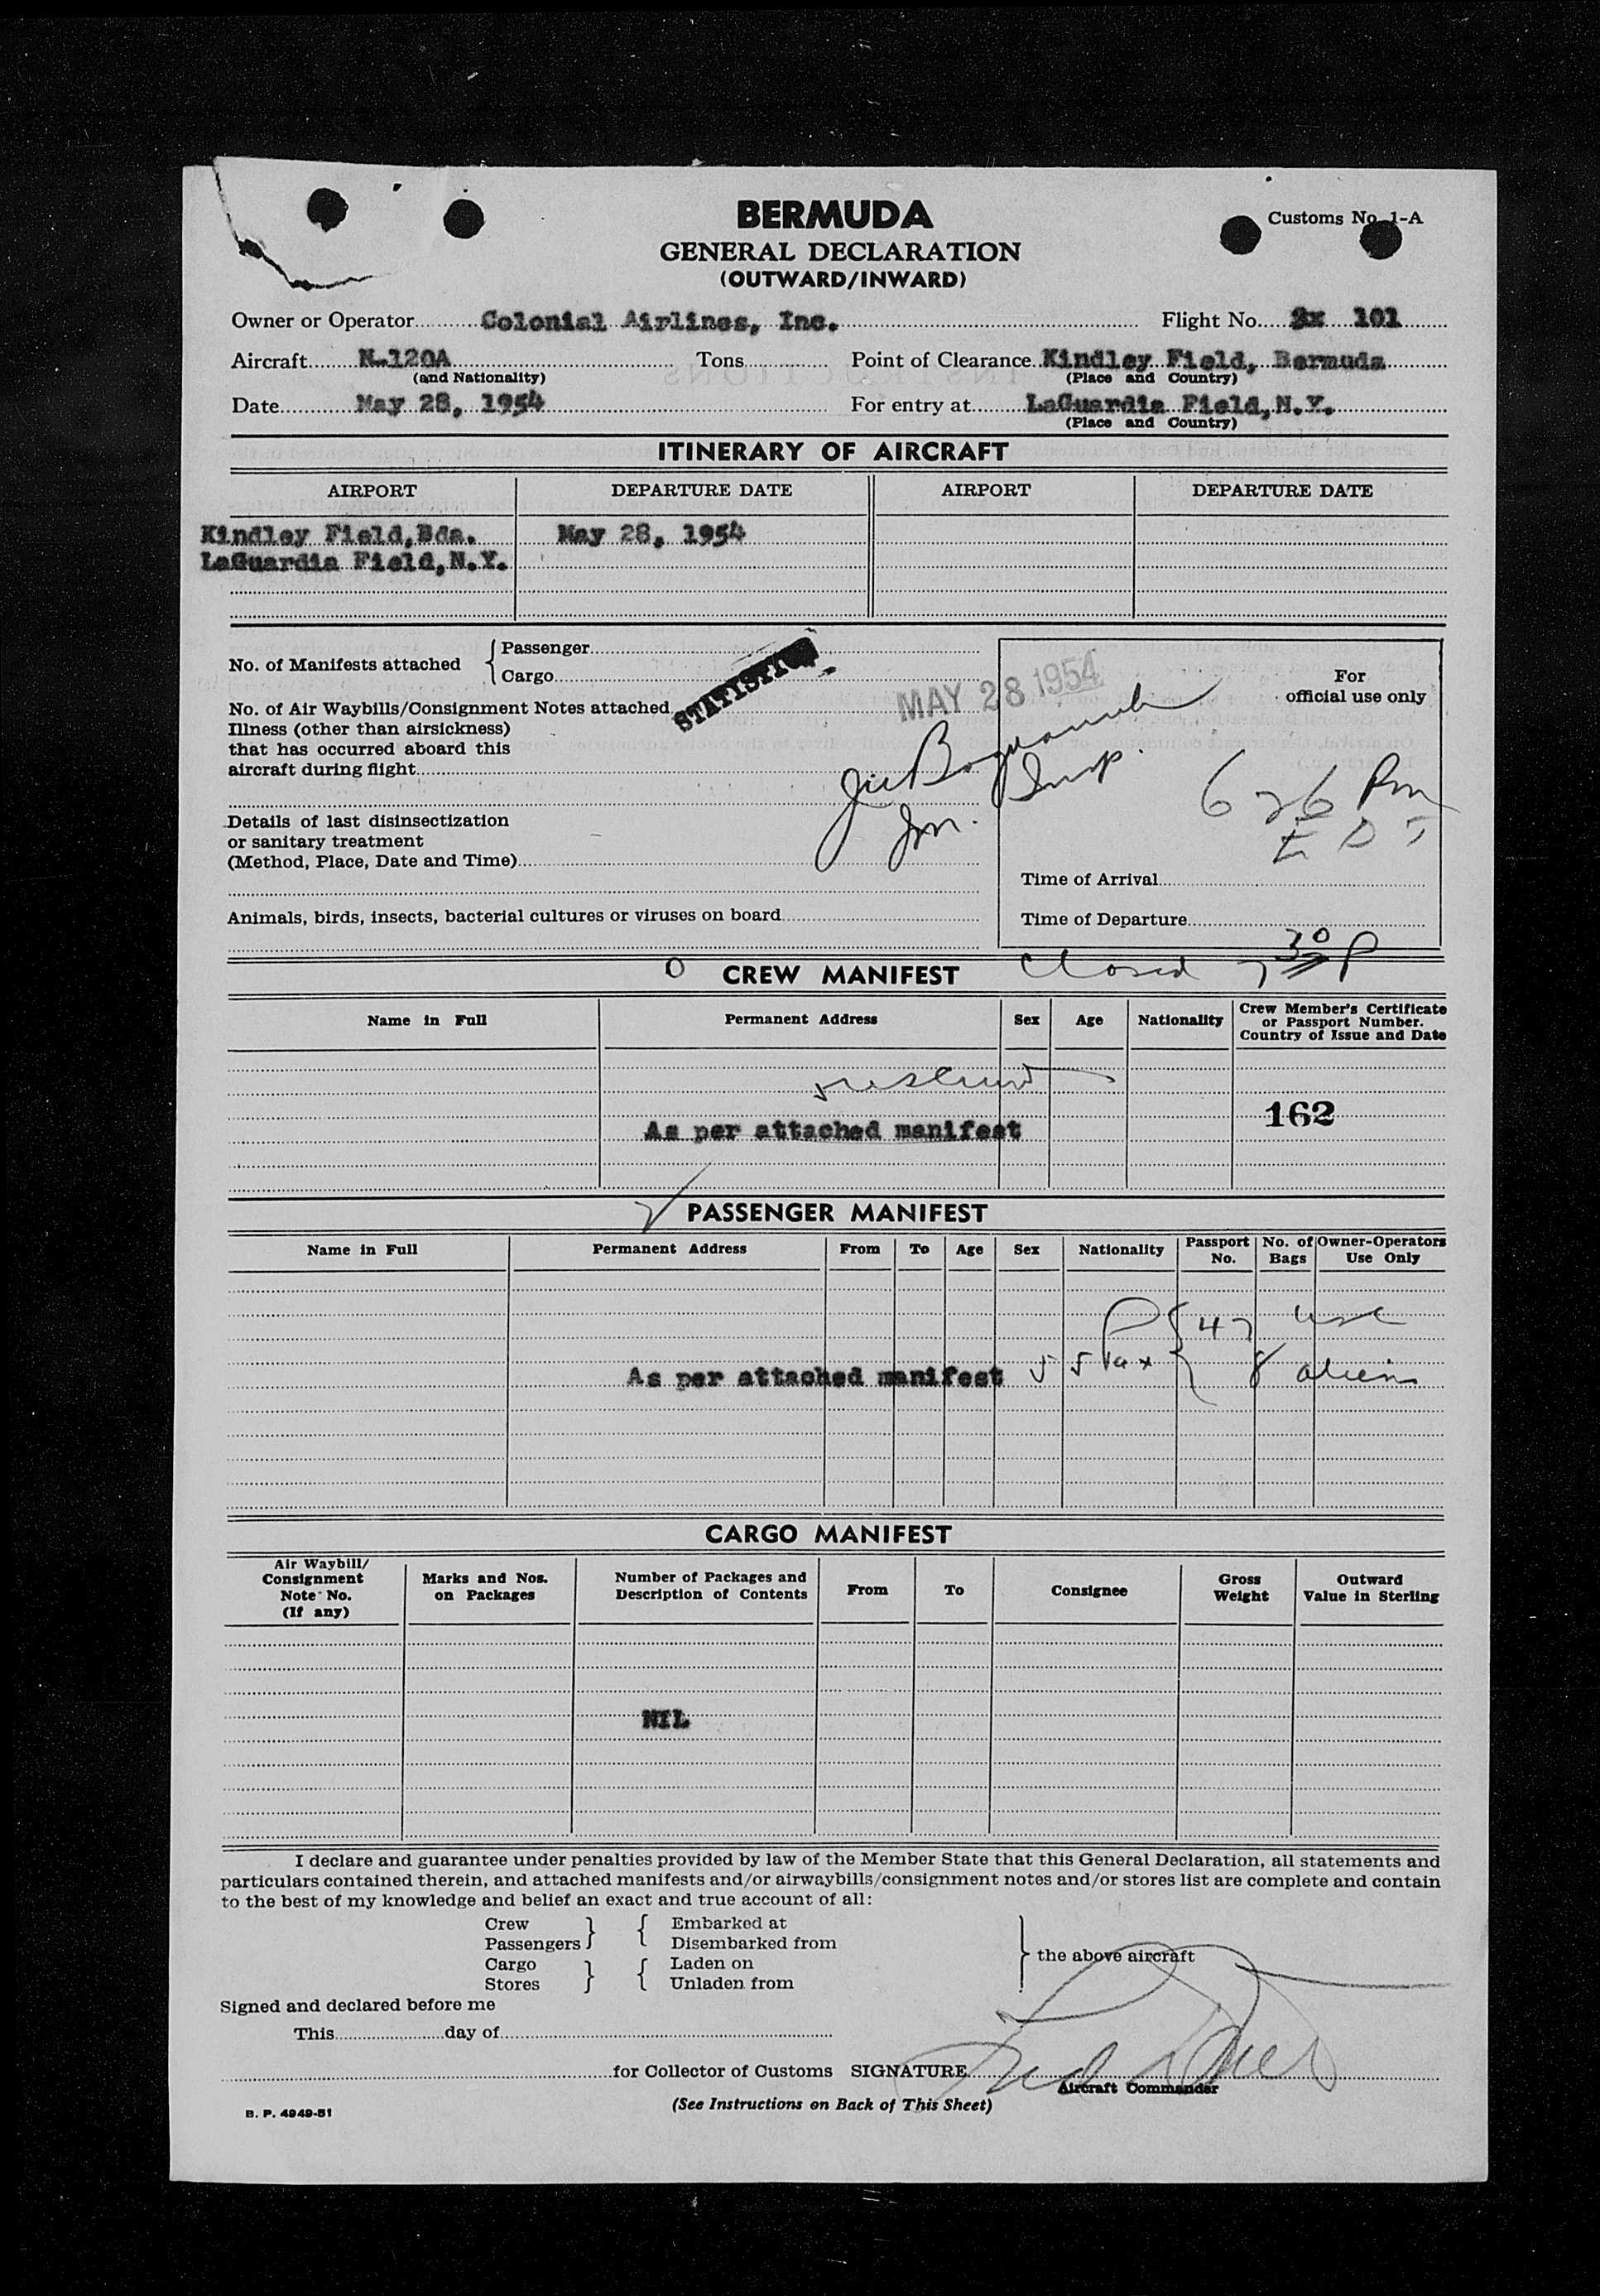 BERMUDA
Customs No. 1-A
GENERAL DECLARATION
(OUTWARD/INWARD)
Owner or Operator Colonial Airlines, Inc. Flight No. 101
Aircraft N-120A Tons Point of Clearance Kindley Field, Bermuda
(and Nationality) (Place and Country)
Date May 28, 1954 For entry at LaGuardia Field, N.Y.
(Place and Country)
ITINERARY OF AIRCRAFT
AIRPORT DEPARTURE DATE AIRPORT DEPARTURE DATE
Kindley Field, Bda. May 28, 1954
LaGuardia Field, N.Y.
No. of Manifests attached { Passenger
Cargo
STATISTICS
MAY 28 1954
For
official use only
No. of Air Waybills/Consignment Notes attached
Illness (other than airsickness)
that has occurred aboard this
aircraft during flight
Insp.
Imm.
626 Pm
EDT
Details of last disinsectization
or sanitary treatment
(Method, Place, Date and Time)
Time of Arrival
Animals, birds, insects, bacterial cultures or viruses on board
Time of Departure
Closed 7 30 P
O CREW MANIFEST
Name in Full Permanent Address Sex Age Nationality Crew Member's Certificate
or Passport Number.
Country of Issue and Date
162
As per attached manifest
PASSENGER MANIFEST
Name in Full Permanent Address From To Age Sex Nationality Passport No. No. of Bags Owner-Operators Use Only
47 usc
As per attached manifest 55 Pax { 8 aliens
CARGO MANIFEST
Air Waybill/
Consignment
Note No.
(If any)
Marks and Nos.
on Packages
Number of Packages and
Description of Contents
From To Consignee
Gross
Weight
Outward
Value in Sterling
NIL
I declare and guarantee under penalties provided by law of the Member State that this General Declaration, all statements and
particulars contained therein, and attached manifests and/or airwaybills/consignment notes and/or stores list are complete and contain
to the best of my knowledge and belief an exact and true account of all:
Crew } { Embarked at
Passengers } { Disembarked from
Cargo } { Laden on
Stores } { Unladen from
} the above aircraft
Signed and declared before me
This day of
for Collector of Customs SIGNATURE
Aircraft Commander
(See Instructions on Back of This Sheet)
B. P. 4949-51